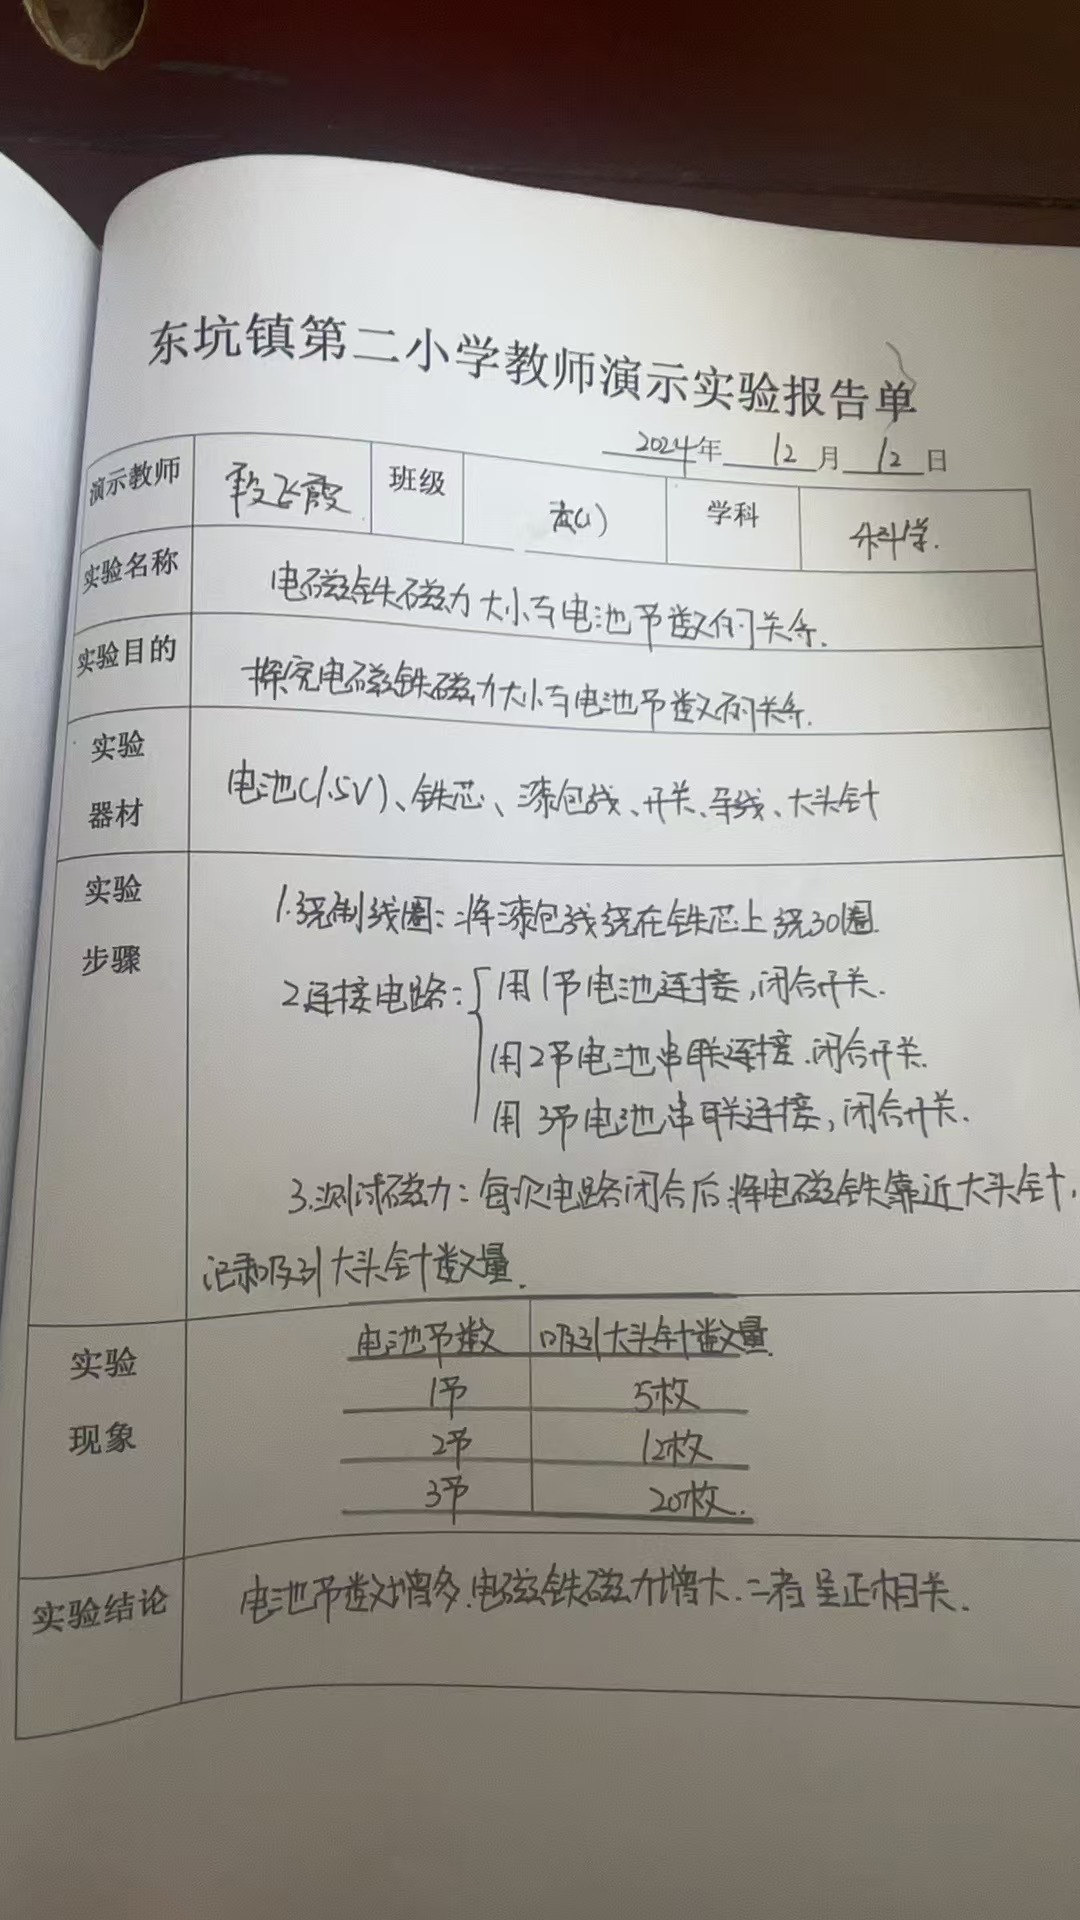 东坑镇第二小学教师演示实验报告单
2024年 12月 12日
演示教师 段飞霞 班级 六(1) 学科 科学.
实验名称 电磁铁磁力大小与电池节数的关系.
实验目的 探究电磁铁磁力大小与电池节数的关系.
实验器材 电池(1.5V)、铁芯、漆包线、开关、导线、大头针
实验步骤
1.绕制线圈:将漆包线绕在铁芯上绕30圈.
2.连接电路:用1节电池连接,闭合开关.
用2节电池串联连接.闭合开关.
用3节电池串联连接,闭合开关.
3.测试磁力:每次电路闭合后,将电磁铁靠近大头针,
记录吸引大头针数量.
实验现象
电池节数 吸引大头针数量
1节 5枚
2节 12枚
3节 20枚.
实验结论 电池节数增多.电磁铁磁力增大.二者呈正相关.